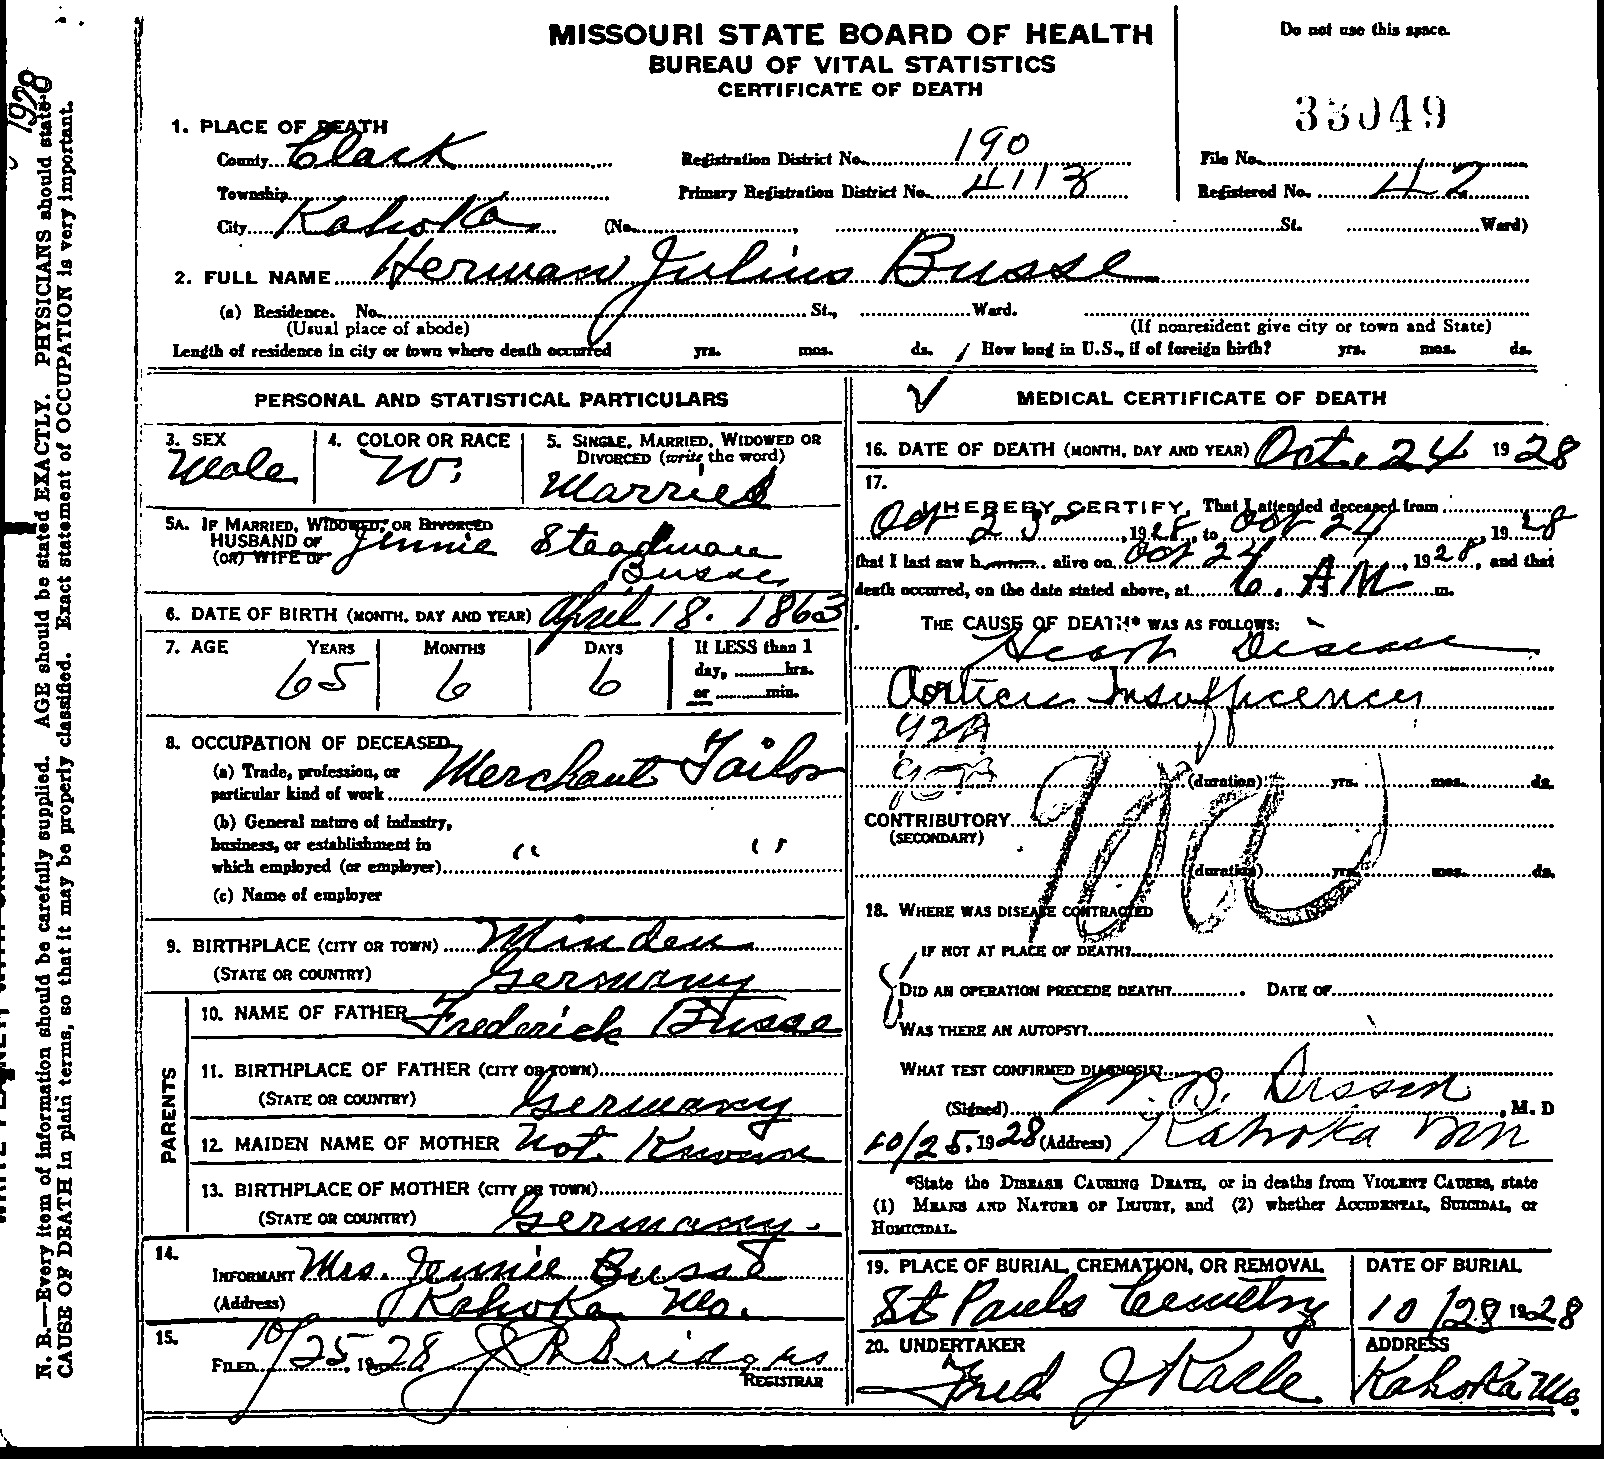 MISSOURI STATE BOARD OF HEALTH
BUREAU OF VITAL STATISTICS
CERTIFICATE OF DEATH
Do not use this space.
33049
1. PLACE OF DEATH
County Clark Registration District No. 190 File No.
Township Primary Registration District No. 4113 Registered No. 42
City Kahoka (No. , St. Ward)
2. FULL NAME Herman Julius Busse
(a) Residence. No. St., Ward.
(Usual place of abode) (If nonresident give city or town and State)
Length of residence in city or town where death occurred yrs. mos. ds. How long in U.S., if of foreign birth? yrs. mos. ds.
PERSONAL AND STATISTICAL PARTICULARS
3. SEX 4. COLOR OR RACE 5. SINGLE, MARRIED, WIDOWED OR
DIVORCED (write the word)
Male W. Married
5A. IF MARRIED, WIDOWED, OR DIVORCED
HUSBAND OF Jennie Steadman
(OR) WIFE OF Busse
6. DATE OF BIRTH (MONTH, DAY AND YEAR) April 18. 1863
7. AGE YEARS MONTHS DAYS If LESS than 1
day, hrs.
65 6 6 or min.
8. OCCUPATION OF DECEASED
(a) Trade, profession, or
particular kind of work Merchant Tailor
(b) General nature of industry,
business, or establishment in
which employed (or employer) " "
(c) Name of employer
9. BIRTHPLACE (CITY OR TOWN) Minden
(STATE OR COUNTRY) Germany
PARENTS
10. NAME OF FATHER Frederick Busse
11. BIRTHPLACE OF FATHER (CITY OR TOWN)
(STATE OR COUNTRY) Germany
12. MAIDEN NAME OF MOTHER Not Known
13. BIRTHPLACE OF MOTHER (CITY OR TOWN)
(STATE OR COUNTRY) Germany.
14. INFORMANT Mrs. Jennie Busse
(Address) Kahoka Mo.
15. FILED 10/25, 1928 J R Bridges
REGISTRAR
MEDICAL CERTIFICATE OF DEATH
16. DATE OF DEATH (MONTH, DAY AND YEAR) Oct. 24 1928
17. I HEREBY CERTIFY, That I attended deceased from
Oct 23rd, 1928, to Oct 24, 1928
that I last saw h alive on Oct 24, 1928, and that
death occurred, on the date stated above, at 6. AM m.
THE CAUSE OF DEATH* WAS AS FOLLOWS:
Heart Disease
Aortic Insufficiency
92A
(duration) yrs. mos. ds.
CONTRIBUTORY
(SECONDARY)
(duration) yrs. mos. ds.
18. WHERE WAS DISEASE CONTRACTED
IF NOT AT PLACE OF DEATH?
DID AN OPERATION PRECEDE DEATH? DATE OF
WAS THERE AN AUTOPSY?
WHAT TEST CONFIRMED DIAGNOSIS?
(Signed) W. B. , M. D
10/25, 1928 (Address) Kahoka Mo
*State the DISEASE CAUSING DEATH, or in deaths from VIOLENT CAUSES, state
(1) MEANS AND NATURE OF INJURY, and (2) whether ACCIDENTAL, SUICIDAL, or
HOMICIDAL.
19. PLACE OF BURIAL, CREMATION, OR REMOVAL DATE OF BURIAL
St Pauls Cemetry 10/28 1928
20. UNDERTAKER ADDRESS
Fred J Kalle Kahoka Mo.
1928
N. B.—Every item of information should be carefully supplied. AGE should be stated EXACTLY. PHYSICIANS should state
CAUSE OF DEATH in plain terms, so that it may be properly classified. Exact statement of OCCUPATION is very important.